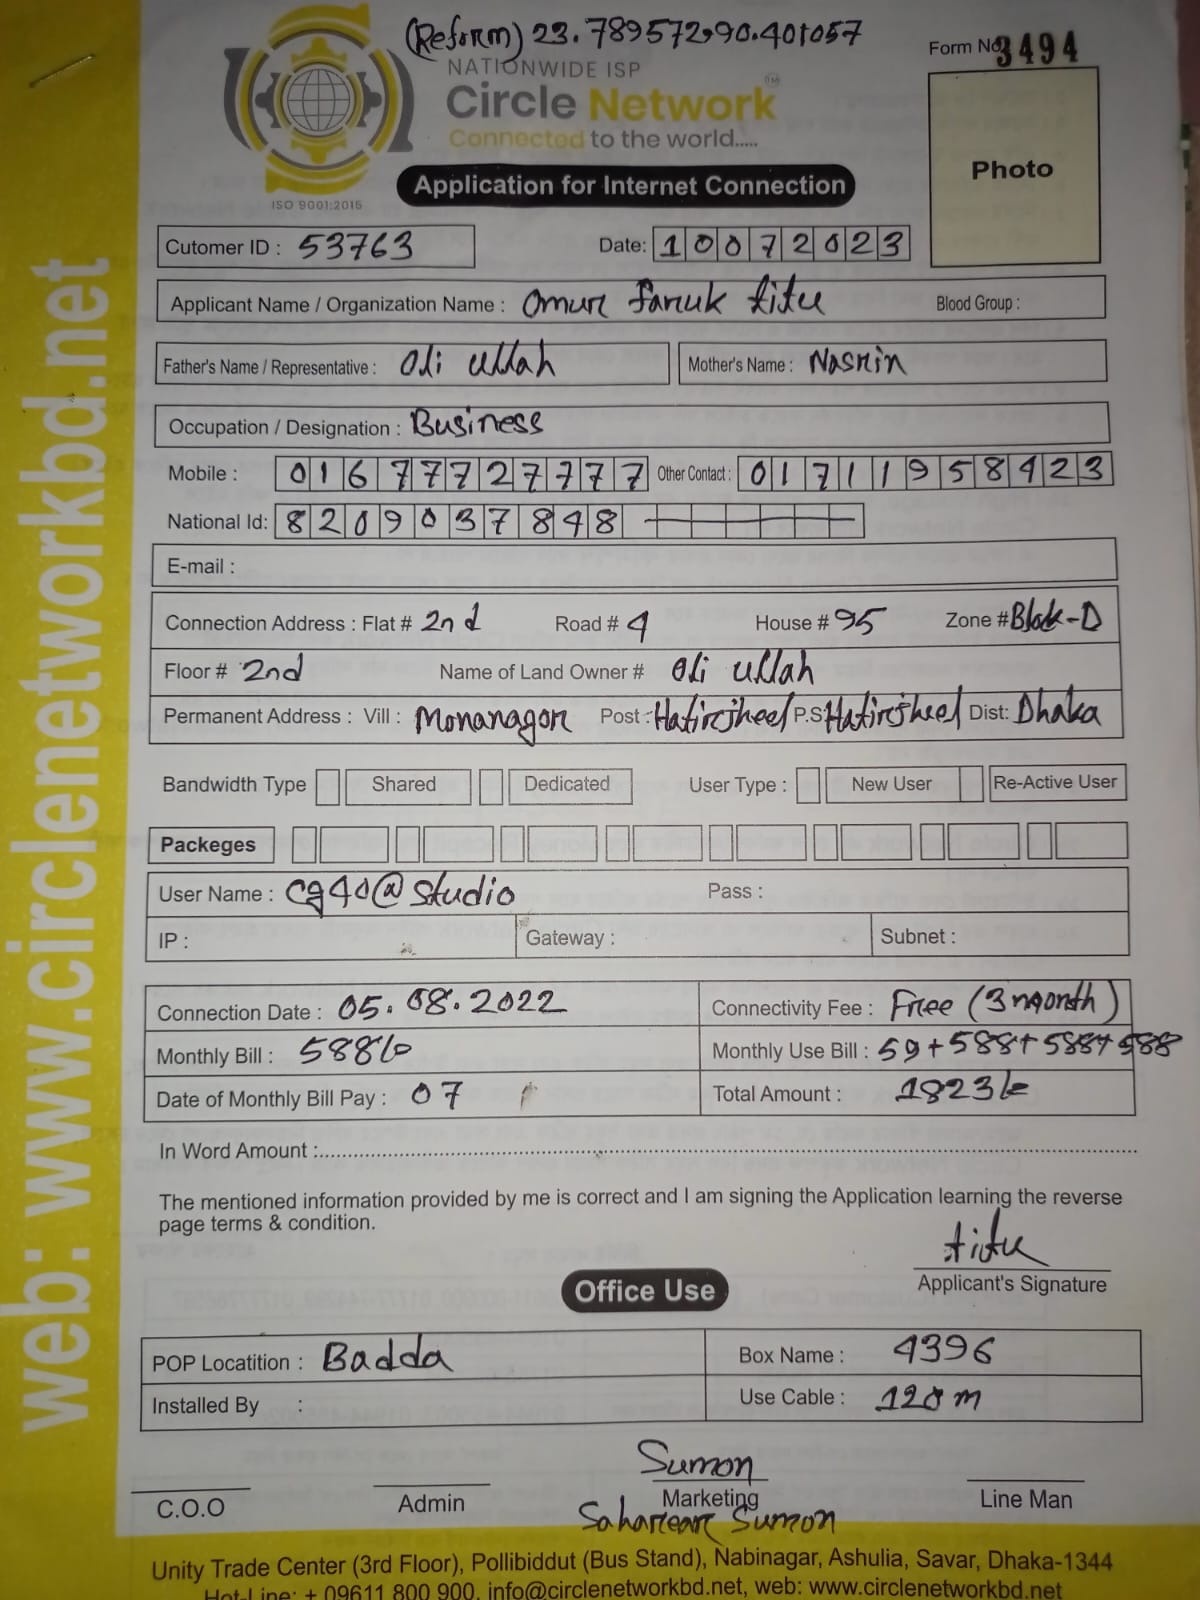 (Reform) 23.789572,90.401057
Form No. 3494
NATIONWIDE ISP
Circle Network TM
Connected to the world.....
ISO 9001:2015
Photo
Application for Internet Connection
Cutomer ID : 53763 Date: 10072023
Applicant Name / Organization Name : Omur faruk titu Blood Group :
Father's Name / Representative : Oli ullah Mother's Name : Nasrin
Occupation / Designation : Business
Mobile : 01677727777 Other Contact : 01711958423
National Id: 8209037848
E-mail :
Connection Address : Flat # 2nd Road # 4 House # 95 Zone # Blok-D
Floor # 2nd Name of Land Owner # Oli ullah
Permanent Address : Vill : Monanagor Post : Hatirjheel P.S: Hatirjheel Dist: Dhaka
Bandwidth Type Shared Dedicated User Type : New User Re-Active User
Packeges
User Name : cg40@studio Pass :
IP : Gateway : Subnet :
Connection Date : 05.08.2022 Connectivity Fee : Free (3 moonth)
Monthly Bill : 588/= Monthly Use Bill : 59+588+588+588
Date of Monthly Bill Pay : 07 Total Amount : 1823/=
In Word Amount :
The mentioned information provided by me is correct and I am signing the Application learning the reverse
page terms & condition.
titu
Applicant's Signature
Office Use
POP Locatition : Badda Box Name : 4396
Installed By : Use Cable : 120m
Sumon
C.O.O Admin Marketing Line Man
Saharear Sumon
Unity Trade Center (3rd Floor), Pollibiddut (Bus Stand), Nabinagar, Ashulia, Savar, Dhaka-1344
Hot-Line: + 09611 800 900, info@circlenetworkbd.net, web: www.circlenetworkbd.net
web: www.circlenetworkbd.net